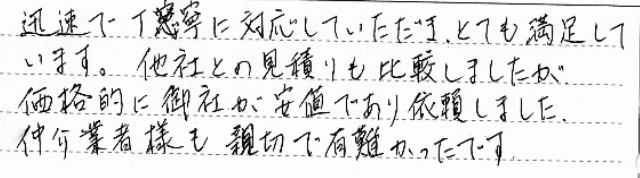 迅速で丁寧に対応していただき、とても満足して
います。他社との見積りも比較しましたが
価格的に御社が安値であり依頼しました。
仲介業者様も親切で有難かったです。